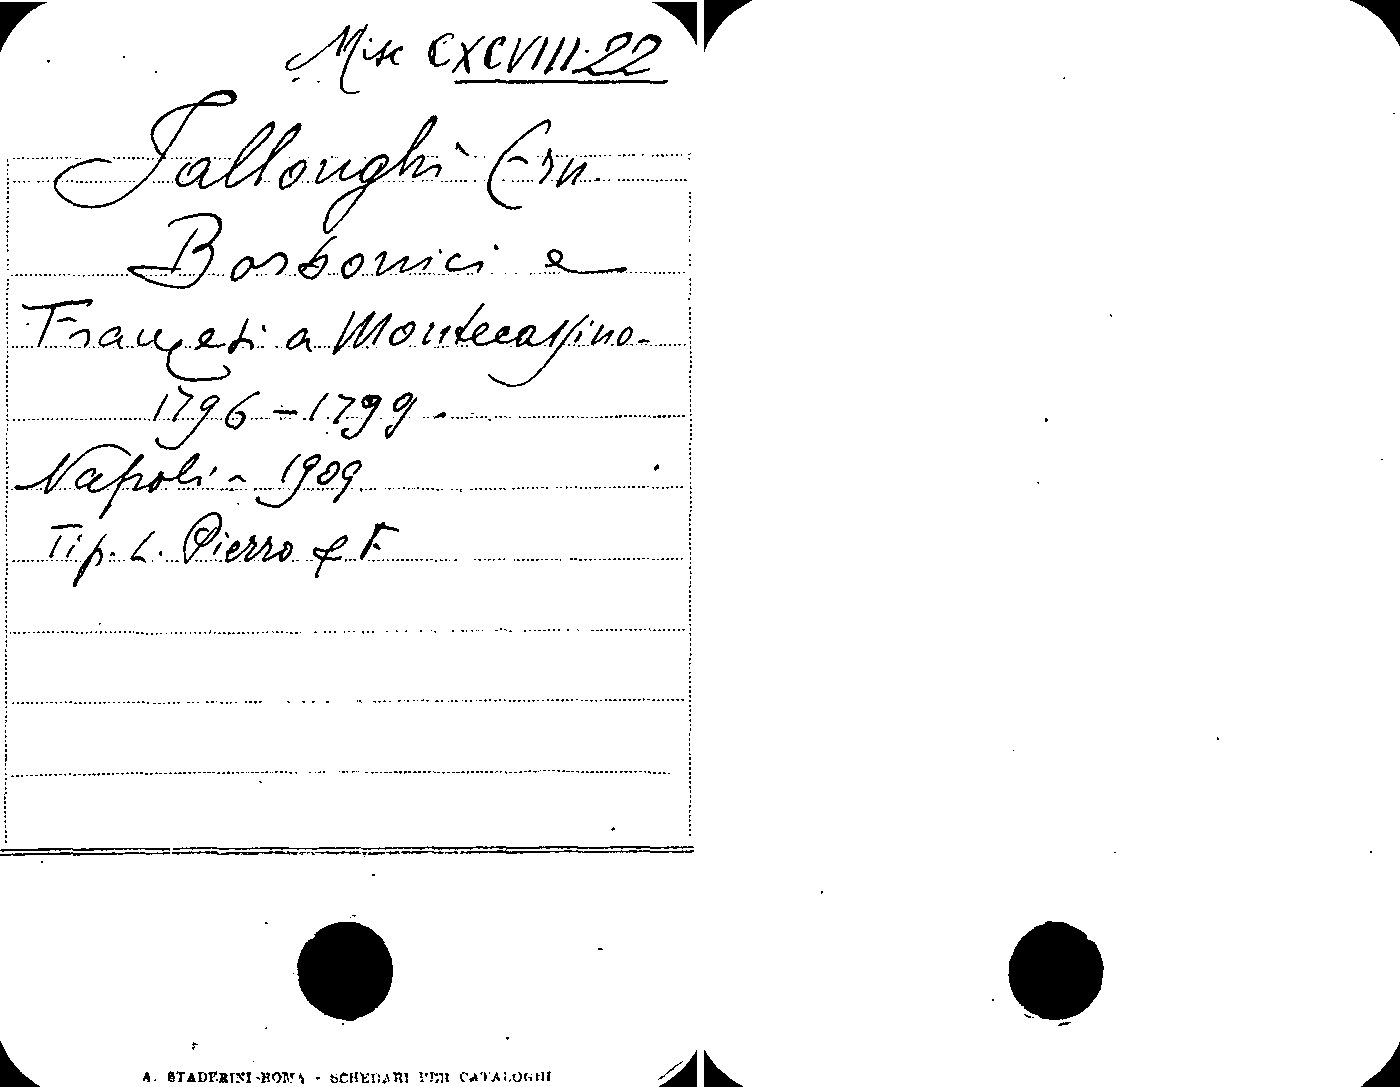 Misc CXCVIII.22
Jallonghi Ern.
Borbonici e
Francesi a Montecassino.
1796-1799.
Napoli - 1909
Tip. L. Pierro & F.
A. STADERINI-ROMA - SCHEDARI PER CATALOGHI